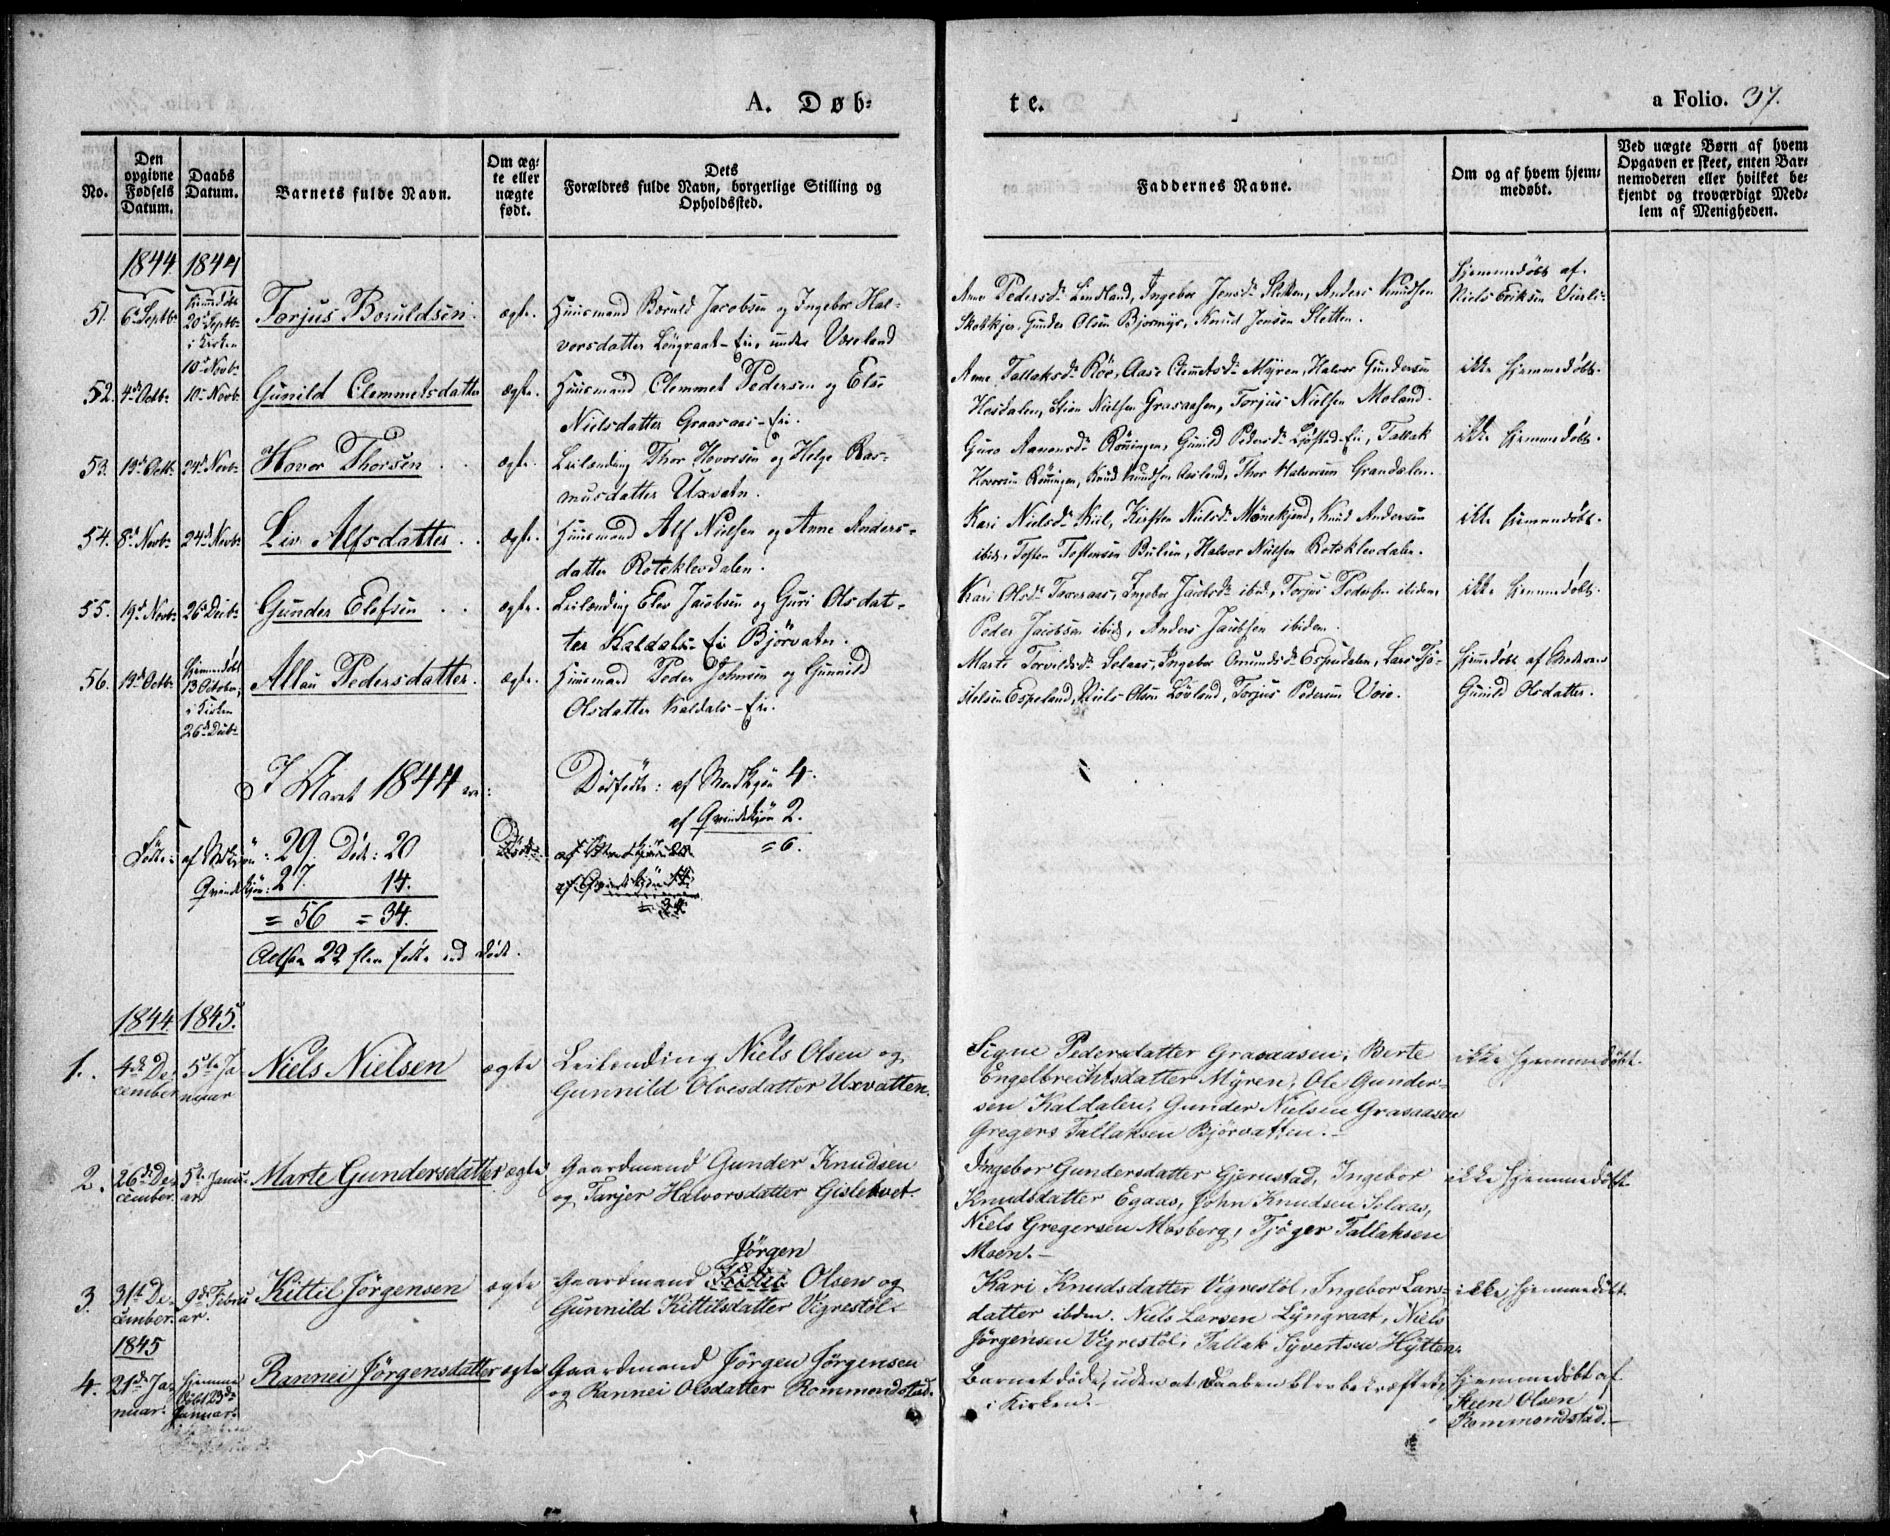 A. Døb-
te.
a Folio. 37.
No.
Den opgivne Fødsels Datum.
Daabs Datum.
Barnets fulde Navn.
Om æg-te eller uægte født.
Dets Forældres fulde Navn, borgerlige Stilling og Opholdssted.
Faddernes Navne.
Om og af hvem hjem-medøbt.
Ved uægte Børn af hvem Opgaven er skeet, enten Bar-nemoderen eller hvilket be-kjendt og troværdigt Med-lem af Menigheden.
1844. 1844
51. 6te Septbr Hjemmedøbt 20de Septbr i Kirken 10de Novbr
Torjus Boruldsen ægte.
Huusmand Boruld Jacobsen og Ingebor Hal-
vorsdatter Løngraat-Eie under Væreland
Anne Pedersdr Lindland, Ingebor Jensdr Sletten, Anders Knudsen
Gunder Olsen Bjormyr, Knud Jensen Sletten.
Hjemmedøbt af
Niels Eriksen
52. 4de Octbr 10de Novbr
Gunild Clemmetsdatter ægte.
Huusmand Clemmet Pedersen og Else
Nielsdatter Graasaas-Eie.
Anne Tallaksdr Röe, Aase Clemetsdr Myren, Halvor Gundersen
Hosdalen, Stien Nielsen Grasaasen, Torjus Nielsen Moland.
ikke hjemmedøbt.
53. 19de Octbr 24de Novbr
Hovor Thorsen ægte.
Leilending Thor Hovorsen og Helge Ras-
musdatter Uxvatn.
Guro Aanensdr Röningen, Gunild Pedersdr Eie, Tallak
Hovorsen Röningen, Knud Knudsen Aasland, Thor Halvorsen Grandalen.
ikke hjemmedøbt.
54. 8de Novbr 24de Novbr
Liv Alfsdatter ægte.
Huusmand Alf Nielsen og Anne Anders-
datter Roteklevdalen.
Kari Nielsdr Kiil, Kirsten Nielsdr Mönekjend, Knud Andersen
ibid, Tosten Tostensen Bulien, Halvor Nielsen Roteklevdalen.
ikke hjemmedøbt.
55. 19de Novbr 26de Decbr
Gunder Elefsen ægte.
Leilending Elev Jacobsen og Guri Olsdat-
ter Kaldals-Eie Björvatn.
Kari Olsdr Taxeraas, Ingebor Jacobsdr ibid, Torjus Pedersen ibidem,
Peder Jacobsen ibid, Anders Jacobsen ibidem.
ikke hjemmedøbt.
56. 19de Octbr Hjemmedøbt 13 October, i Kirken 26de Decbr
Allau Pedersdatter. ægte.
Huusmand Peder Johnsen og Gunnild
Olsdatter Kaldals-Eie.
Marte Torvildsdr Solaas, Ingebor Omundsdr Espedalen, Lars
Espeland, Niels Olsen Lövland, Torjus Pedersen Voie.
Hjemmedøbt af
Gunild Olsdatter.
I Aaret 1844 ere:
Födte: af Mdkjön: 29. Döde: 20
Qvindekjön: 27. 14.
= 56 = 34.
Altsaa 22 flere födte end döde.
Dödfödte: af Mandkjön 4.
af Qvindekjön 2.
= 6.
1844. 1845.
1. 4de December 5te Januar
Niels Nielsen ægte
Leilending Niels Olsen og
Gunnild Olvesdatter Uxvatten.
Signe Pedersdatter Grasaasen, Berte
Engelbrechtsdatter Myren, Ole Gunder-
sen Kaldalen, Gunder Nielsen Grasaasen
Gregers Tallaksen Björvatten.
ikke hjemmedøbt.
2. 26de December. 5te Januar
Marte Gundersdatter ægte
Gaardmand Gunder Knudsen
og Tarjer Halvorsdatter Gislekvet.
Ingebor Gundersdatter Gjernstad, Ingebor
Knudsdatter Egaas, John Knudsen Solaas,
Niels Gregersen Mosberg, Tjöger Tallaksen
Moen.
ikke hjemmedøbt
3. 31te December. 9de Februar.
Kittil Jörgensen ægte
Jörgen
Gaardmand Kittil Olsen og
Gunnild Kittilsdatter Vigrestöl.
Kari Knudsdatter Vigrestöl, Ingebor Lars-
datter ibdm. Niels Larsen Lyngraat, Niels
Jörgensen Vigrestöl, Tallak Syvertsen Hytten.
ikke hjemmedöbt.
1845
4. 21de Januar. hjemmedöbt 23de Januar.
Rannei Jörgensdatter ægte
Gaardmand Jörgen Jörgensen
og Rannei Olsdatter Rommondstad.
Barnet döde, uden at Daaben blev bekræftet,
i Kirken.
Hjemmedöbt af
Steen Olsen
Rommondstad.